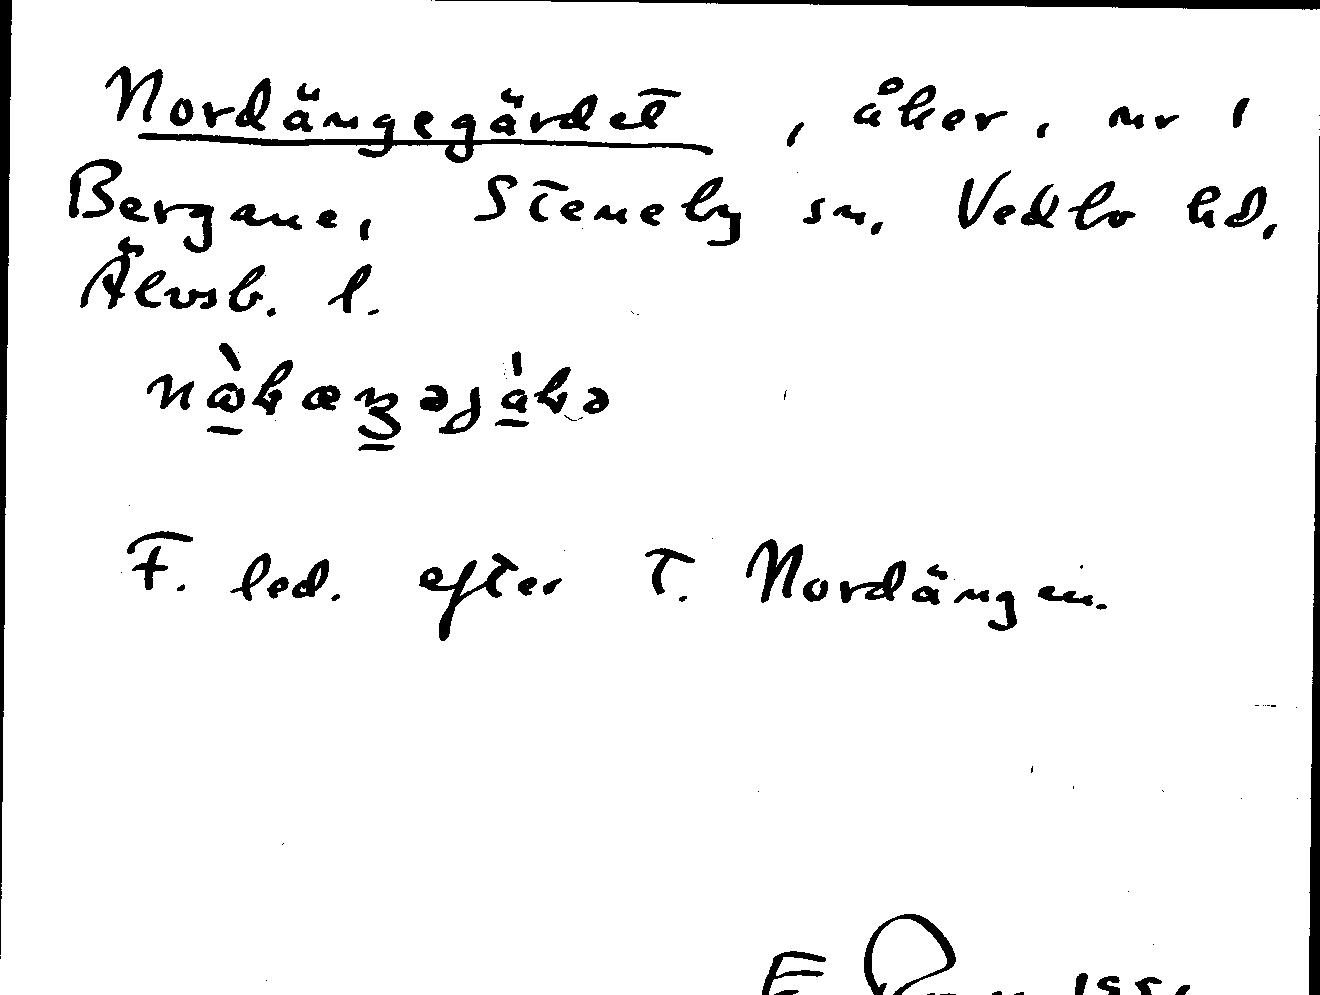 Nordängegärdet, åker, nr 1
Bergane, Steneby sn. Vedbo hd.
Älvsb. l.
F. led. efter T. Nordängen.
E